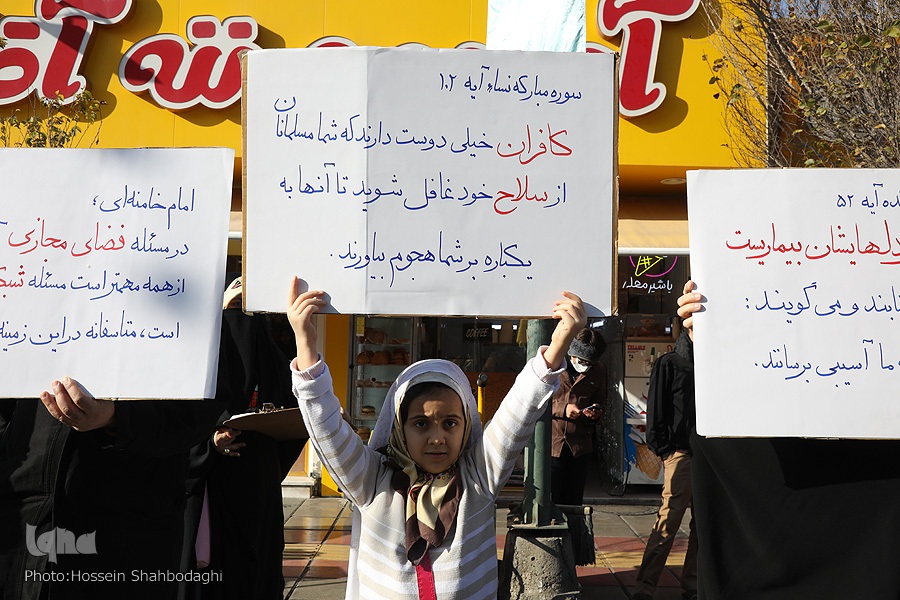 سوره مبارکه نساء آیه ۱۰۲
کافران خیلی دوست دارند که شما مسلمانان
از سلاح خود غافل شوید تا آنها به
یکباره بر شما هجوم بیاورند.
امام خامنه‌ای؛
در مسئله فضای مجازی
از همه مهمتر است مسئله
است، متاسفانه در این زمینه
آیه ۵۲
دلهایشان بیماریست
و می گویند:
ما آسیبی برسانند.
COFFEE
Iqna
Photo:Hossein Shahbodaghi